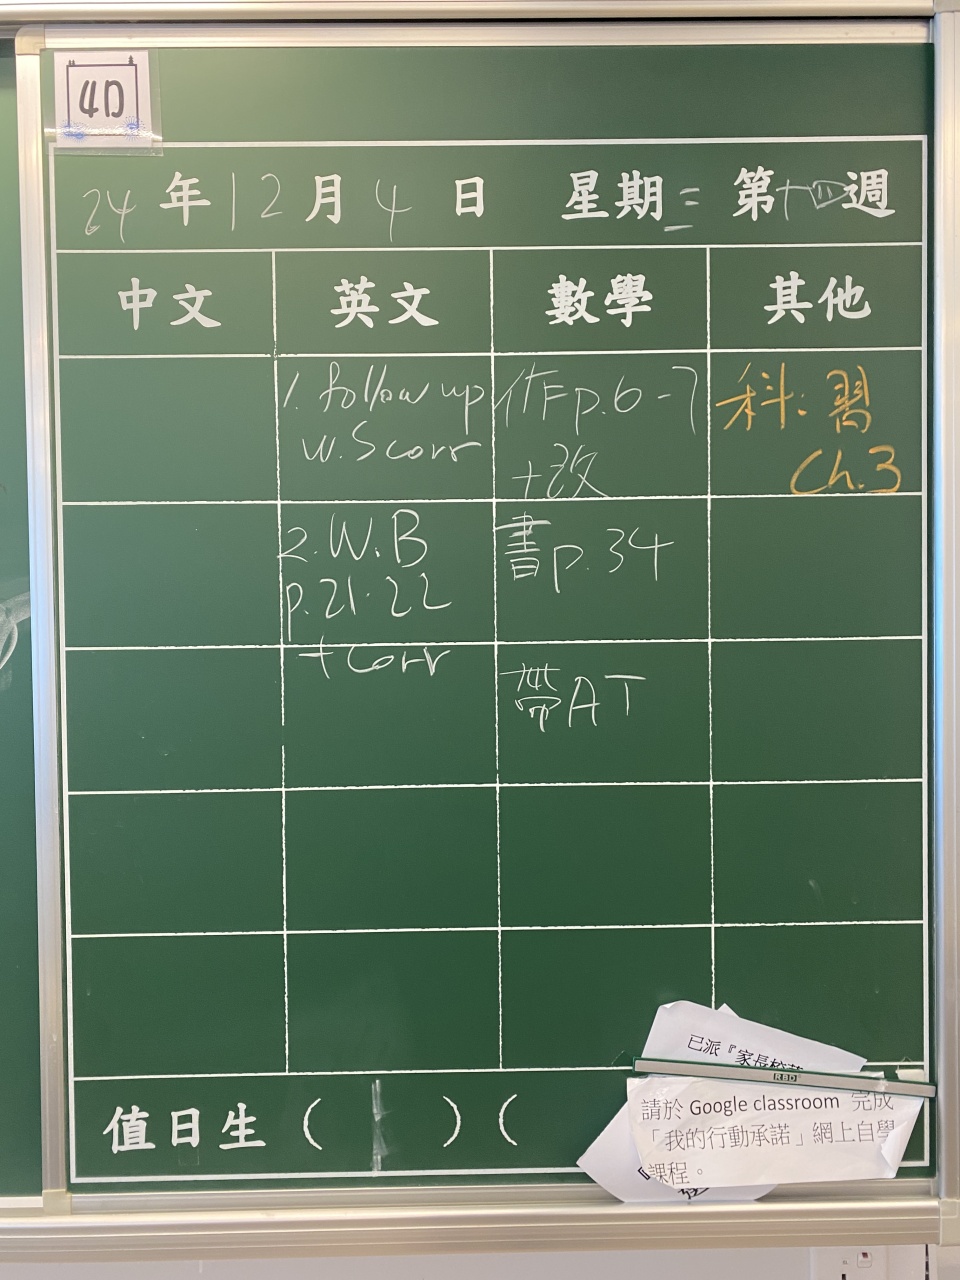 4D
24年12月4日 星期三 第十四週
中文 英文 數學 其他
1. follow up
w.s corr
2. W.B
p.21-22
+ corr
作F p.6-7
+改
書p.34
帶AT
科: 習
Ch.3
值日生 ( ) (
已派『家長
RBD
請於 Google classroom 完成
「我的行動承諾」網上自學
課程。